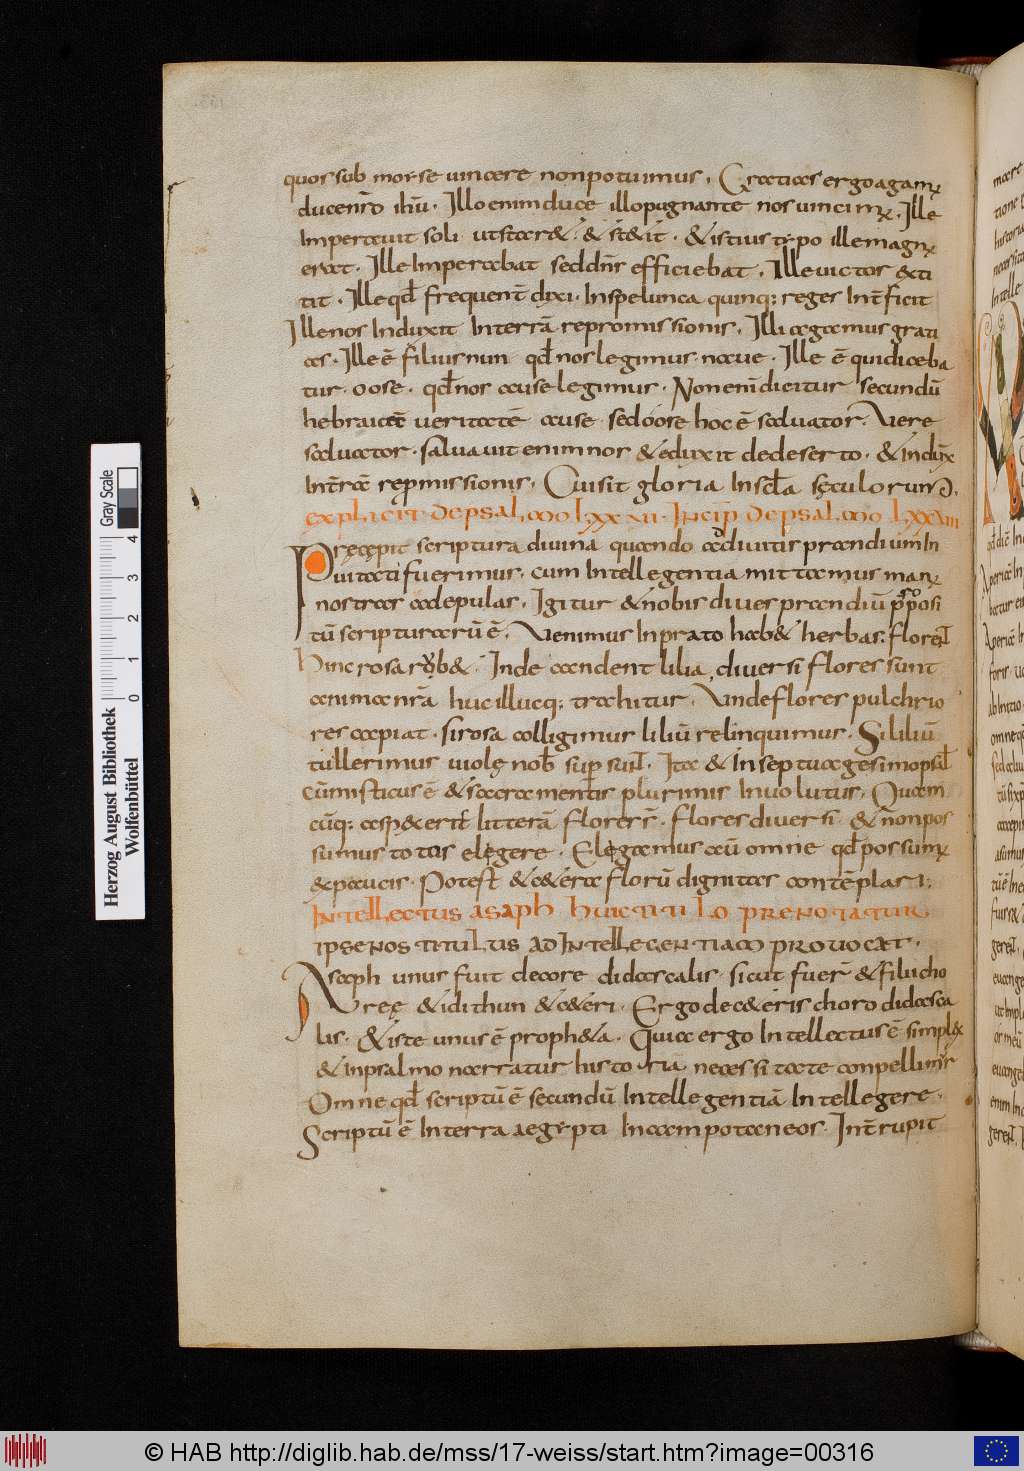 quos sub morse uincere non potuimus. Gratias ergo agamꝰ
duci nr̄o ihū. Illo enim duce illo pugnante nos uincimꝰ. Ille
Imperauit soli ut star& & st&it. & istius tēpo ille magnꝰ
erat. Ille Imperabat sed dn̄s efficiebat. Ille uictor exti
tit. Ille qđ frequent̄ dixi. In spelunca quinq; reges Int̄ficit
Ille nos Induxit In terrā repromissionis. Illi agamus grati
as. Ille ē filius nun qđ nos legimus naue. Ille ē qui diceba
tur. oose. qđ nos ause legimus. Non enī dicitur secundū
hebraicā ueritatē ause sed oose hoc ē saluator. Vere
saluator. saluauit enim nos & eduxit de deserto. & indux̄
Int̄rā rep̱missionis. Cui sit gloria In scl̄a sęculorum.
explicit de psalmo Lxxvii. Incip de psalmo Lxxvii
Pręcępit scriptura diuina quando ad diuitis prandium In
uitati fuerimus. cum Intellegentia mittamus manꝰ
nostras ad epulas. Igitur & nobis diues prandiū p̱posi
tū scripturarū ē. Venimus In prato hab& herbas: flores
hinc rosa rub&. Inde candent lilia, diuersi flores sunt
anima nr̄a huc illucq; trahitur. Vnde flores pulchrio
res capiat. si rosa colligimus liliū relinquimus. Si liliū
tullerimus uiolę nob̄ sup̱sunt. Ita & in septuagesimo psal
cū misticus ē & sacramentis plurimis Inuolutus. Quam
cūq; aspexerit litterā flores. flores diuersi. & n̄ non pos
sumus totus elegere. Elegamus aū omne qđ possumꝰ
& paucis. Potest & c&era florū dignitas contēplari.
Intellectus asaph huic titulo prenotatur
ipse nos titulus ad Intellegentiam prouocat.
Asaph unus fuit de core didascalis. sicut fuer̄ & filii cho
reę & idithun & c&eri. Ergo de c&eris choro didasca
lis. & iste unus ē proph&a. Quia ergo Intellectus ē simplex
& In psalmo narratur historia necessitate conpellimur
Omne qđ scriptū ē secundū Intellegentiā Intellegere.
Scriptū ē In terra aegypti In campo taneos. Int̄rupit
Herzog August Bibliothek
Wolfenbüttel
0 1 2 3 4
Gray Scale
© HAB http://diglib.hab.de/mss/17-weiss/start.htm?image=00316